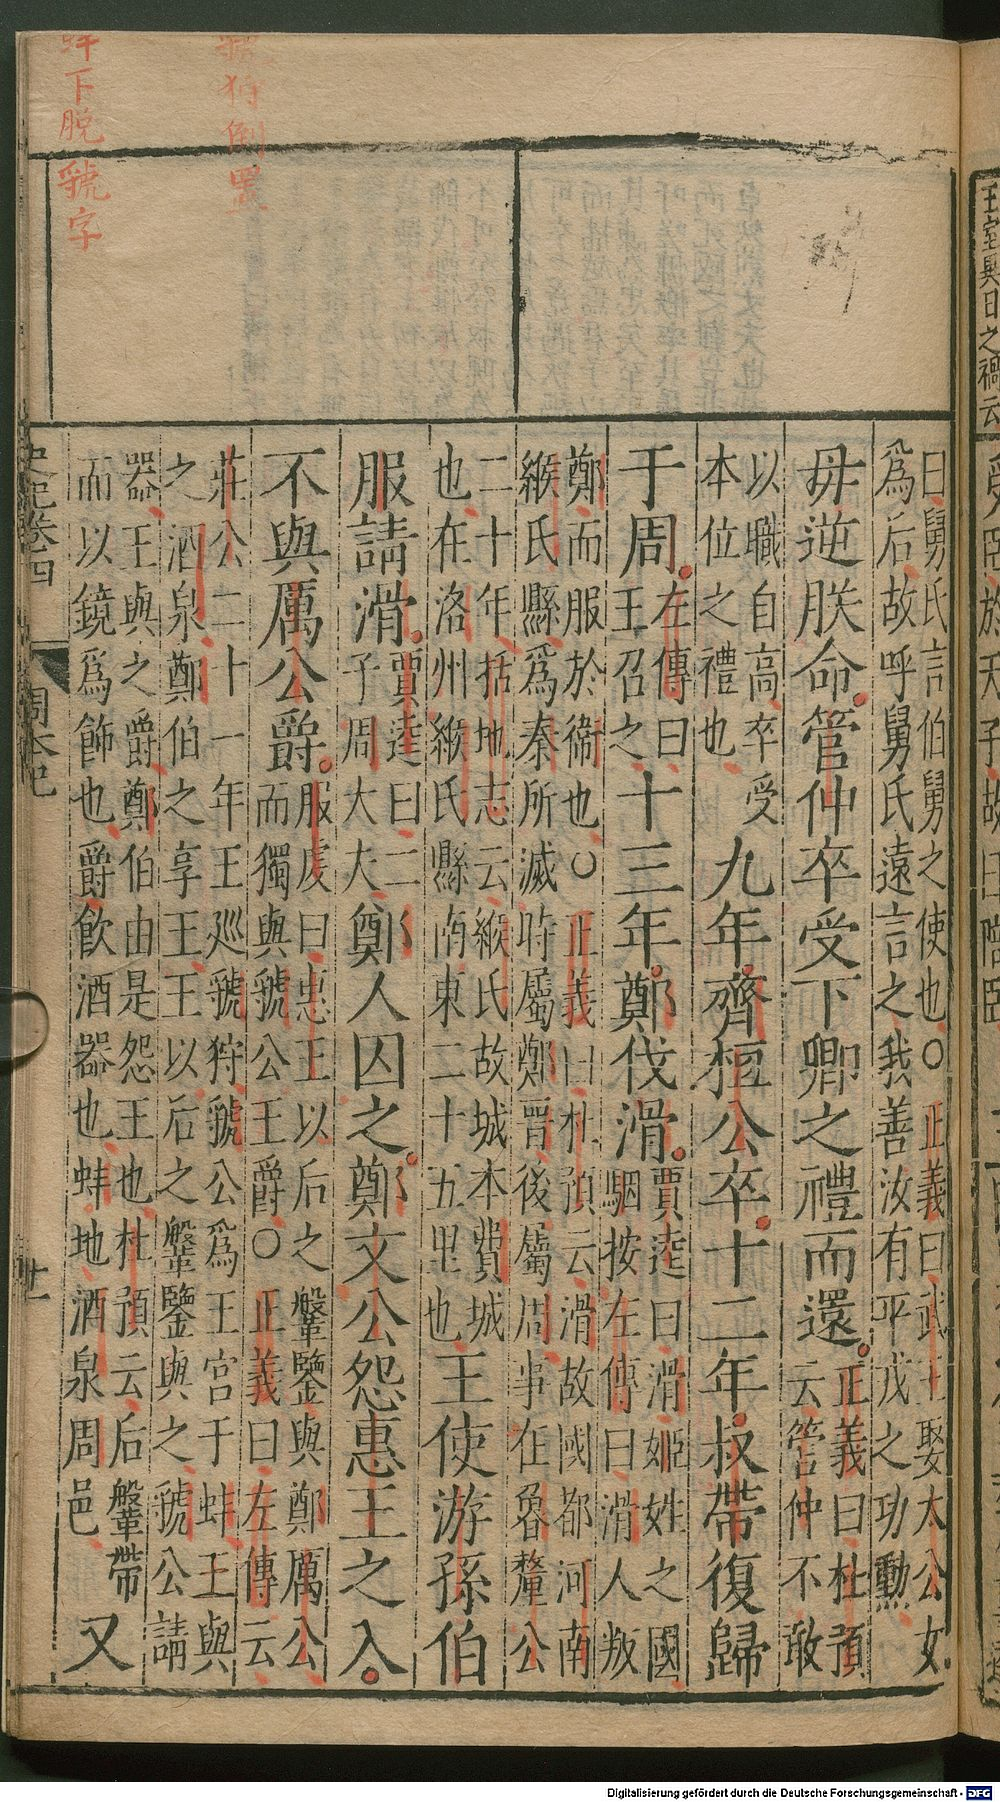 虢狩倒置
蚌下脫虢字
曰舅氏言伯舅之使也○正義曰武王娶太公女
爲后故呼舅氏遠言之我善汝有平戎之功勳
毋逆朕命管仲卒受下卿之禮而還正義曰杜預
云管仲不敢
以職自高卒受
本位之禮也九年齊桓公卒十二年叔帶復歸
于周左傳曰
王召之十三年鄭伐滑賈逵曰滑姬姓之國
駰按左傳曰滑人叛
鄭而服於衞也○正義曰杜預云滑故國都河南
緱氏縣爲秦所滅時屬鄭晉後屬周事在魯釐公
二十年括地志云緱氏故城本費城
也在洛州緱氏縣南東二十五里也王使游孫伯
服請滑賈逵曰二
子周大夫鄭人囚之鄭文公怨惠王之入
不與厲公爵服虔曰惠王以后之鞶鑒與鄭厲公
而獨與虢公王爵○正義曰左傳云
莊公二十一年王巡虢狩虢公爲王宫于蚌王與
之酒泉鄭伯之享王王以后之鞶鑒與之虢公請
器王與之爵鄭伯由是怨王也杜預云后鞶帶
而以鏡爲飾也爵飲酒器也蚌地酒泉周邑又
史記卷四
周本紀
卅一
王室異日之禍云
Digitalisierung gefördert durch die Deutsche Forschungsgemeinschaft - DFG